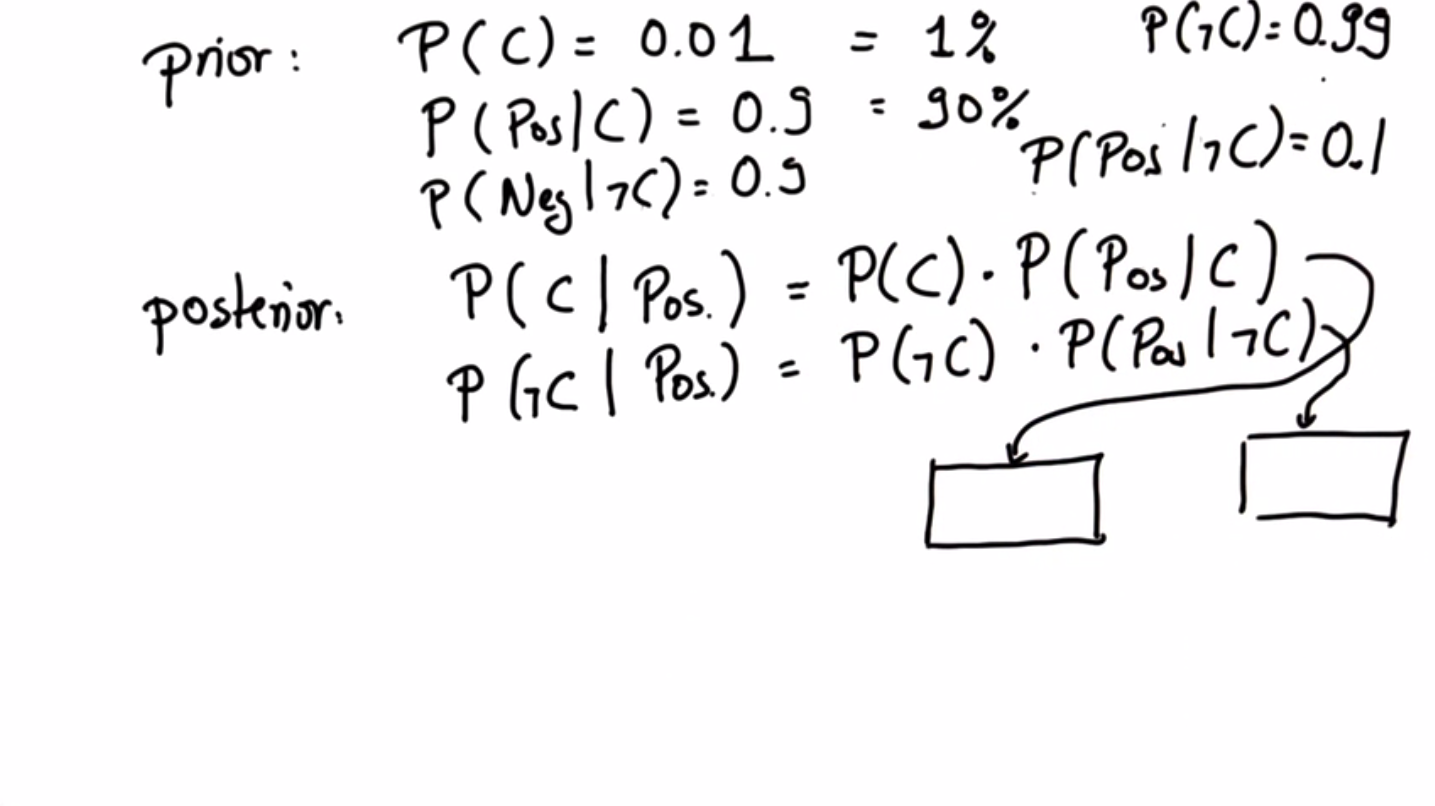 prior: P(C) = 0.01 = 1% P(¬C) = 0.99
P(Pos|C) = 0.9 = 90%
P(Pos|¬C) = 0.1
P(Neg|¬C) = 0.9
posterior: P(C|Pos.) = P(C)·P(Pos|C)
P(¬C|Pos.) = P(¬C)·P(Pos|¬C)